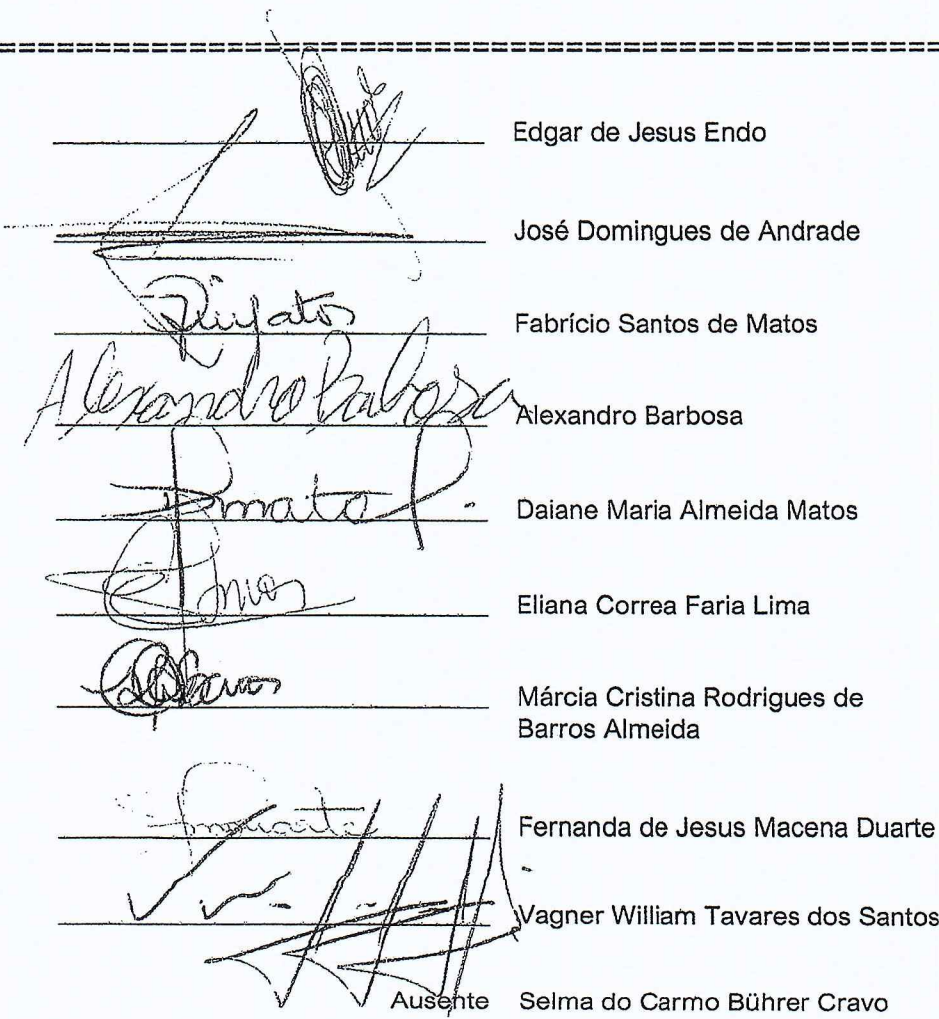 Edgar de Jesus Endo
José Domingues de Andrade
Fabrício Santos de Matos
Alexandro Barbosa Alexandro Barbosa
Daiane Maria Almeida Matos
Eliana Correa Faria Lima
Márcia Cristina Rodrigues de
Barros Almeida
Fernanda de Jesus Macena Duarte
Vagner William Tavares dos Santos
Ausente Selma do Carmo Bührer Cravo